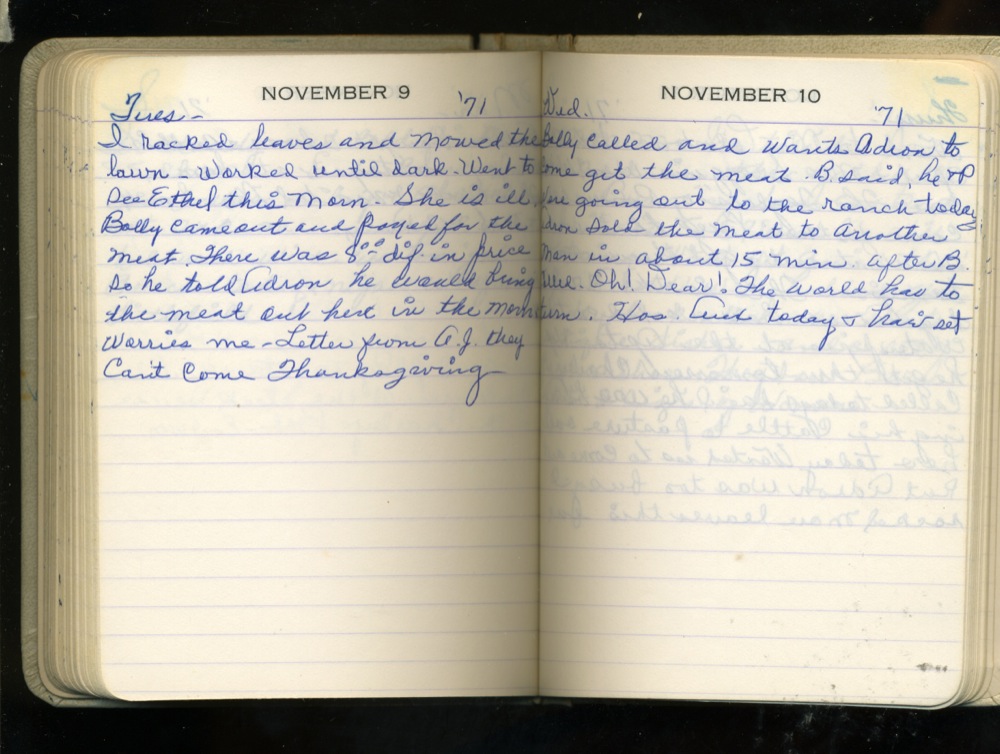 NOVEMBER 9
Tues- '71
I racked leaves and mowed the
lawn - Worked until dark. Went to
see Ethel this Morn. She is ill.
Bolly came out and payed for the
meat. There was 8⁰⁰ dif. in price
so he told Adron he would bring
the meat out here in the morn
Worries me - Letter from A.J. they
Can't Come Thanksgiving
NOVEMBER 10
Wed. '71
Bolly called and wants Adron to
come get the meat. B. said, he & P
were going out to the ranch today.
Adron sold the meat to another
Man in about 15 min. after B.
Oh! Dear! The world has to
turn. today & hair set